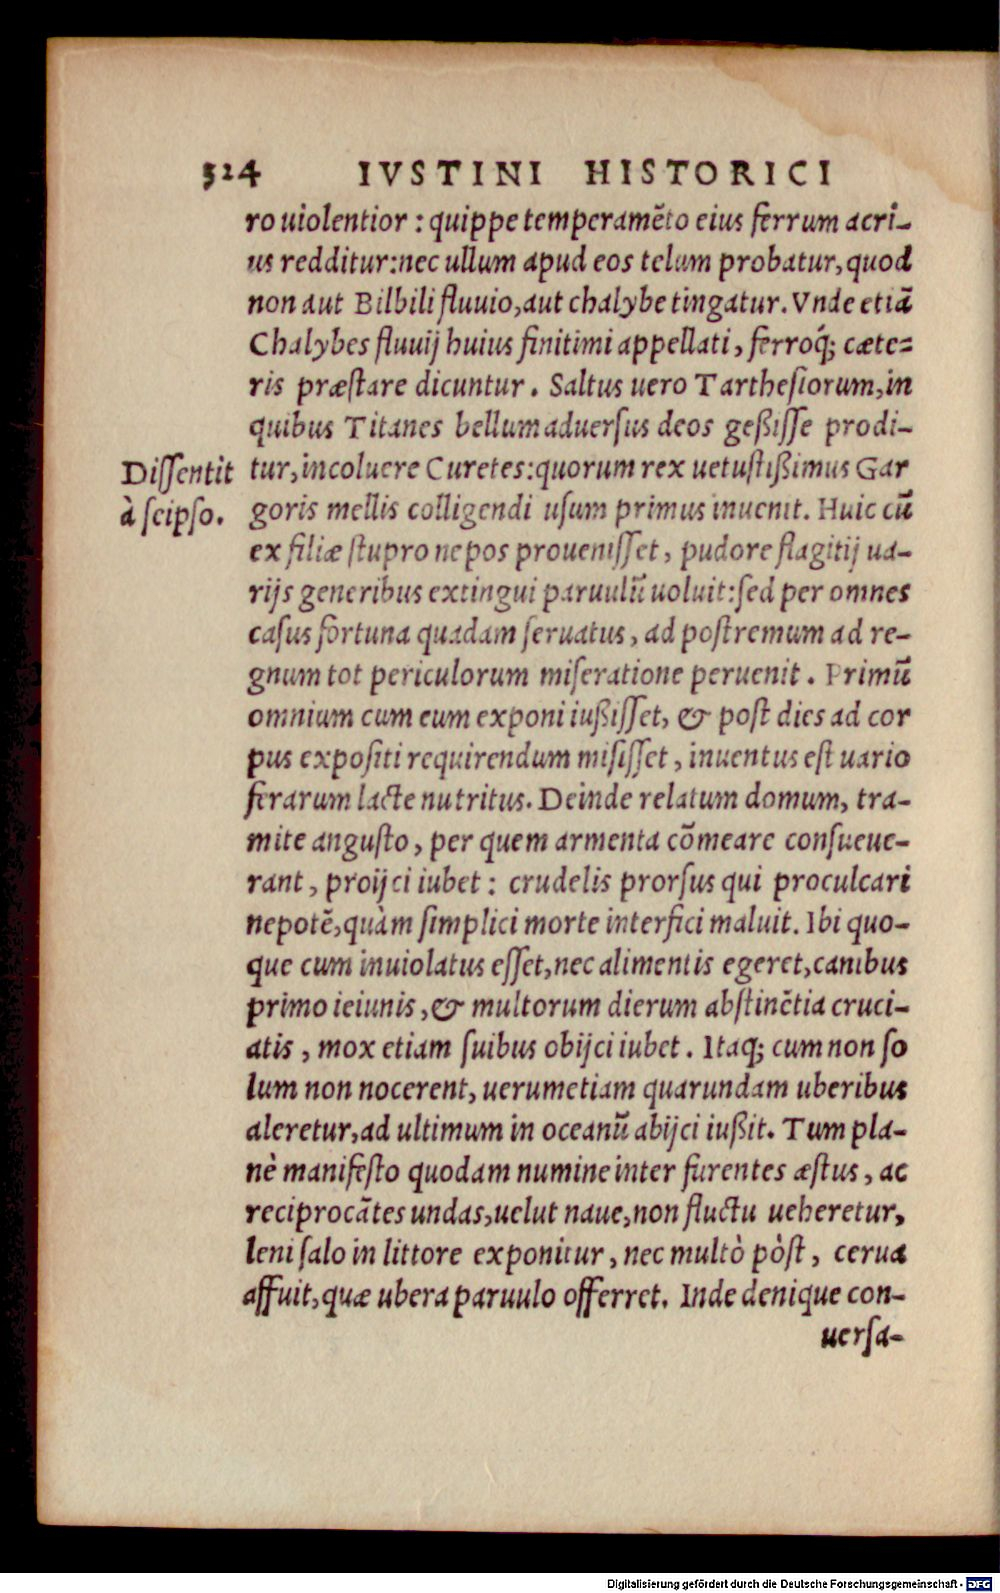 324 IVSTINI HISTORICI
ro uiolentior : quippe temperamẽto eius ferrum acri-
us redditur: nec ullum apud eos telum probatur, quod
non aut Bilbili fluuio, aut chalybe tingatur. Vnde etiã
Chalybes fluuij huius finitimi appellati, ferroq́; cæte=
ris præſtare dicuntur. Saltus uero Tartheſiorum, in
quibus Titanes bellum aduerſus deos geßiſſe prodi-
Diſſentit
à ſeipſo.
tur, incoluere Curetes: quorum rex uetuſtißimus Gar
goris mellis colligendi uſum primus inuenit. Huic cũ
ex filiæ ſtupro nepos proueniſſet, pudore flagitij ua-
rijs generibus extingui paruulũ uoluit: ſed per omnes
caſus fortuna quadam ſeruatus, ad poſtremum ad re-
gnum tot periculorum miſeratione peruenit. Primũ
omnium cum eum exponi iußiſſet, & poſt dies ad cor
pus expoſiti requirendum miſiſſet, inuentus eſt uario
ferarum lacte nutritus. Deinde relatum domum, tra-
mite anguſto, per quem armenta cõmeare conſueue-
rant, proijci iubet: crudelis prorſus qui proculcari
nepotẽ, quàm ſimplici morte interfici maluit. Ibi quo-
que cum inuiolatus eſſet, nec alimentis egeret, canibus
primo ieiunis, & multorum dierum abſtinẽtia cruci-
atis, mox etiam ſuibus obijci iubet. Itaq; cum non ſo
lum non nocerent, uerumetiam quarundam uberibus
aleretur, ad ultimum in oceanũ abijci iußit. Tum pla-
nè manifeſto quodam numine inter furentes æſtus, ac
reciprocãtes undas, uelut naue, non fluctu ueheretur,
leni ſalo in littore exponitur, nec multò pòſt, cerua
affuit, quæ ubera paruulo offerret. Inde denique con-
uerſa-
Digitalisierung gefördert durch die Deutsche Forschungsgemeinschaft - DFG